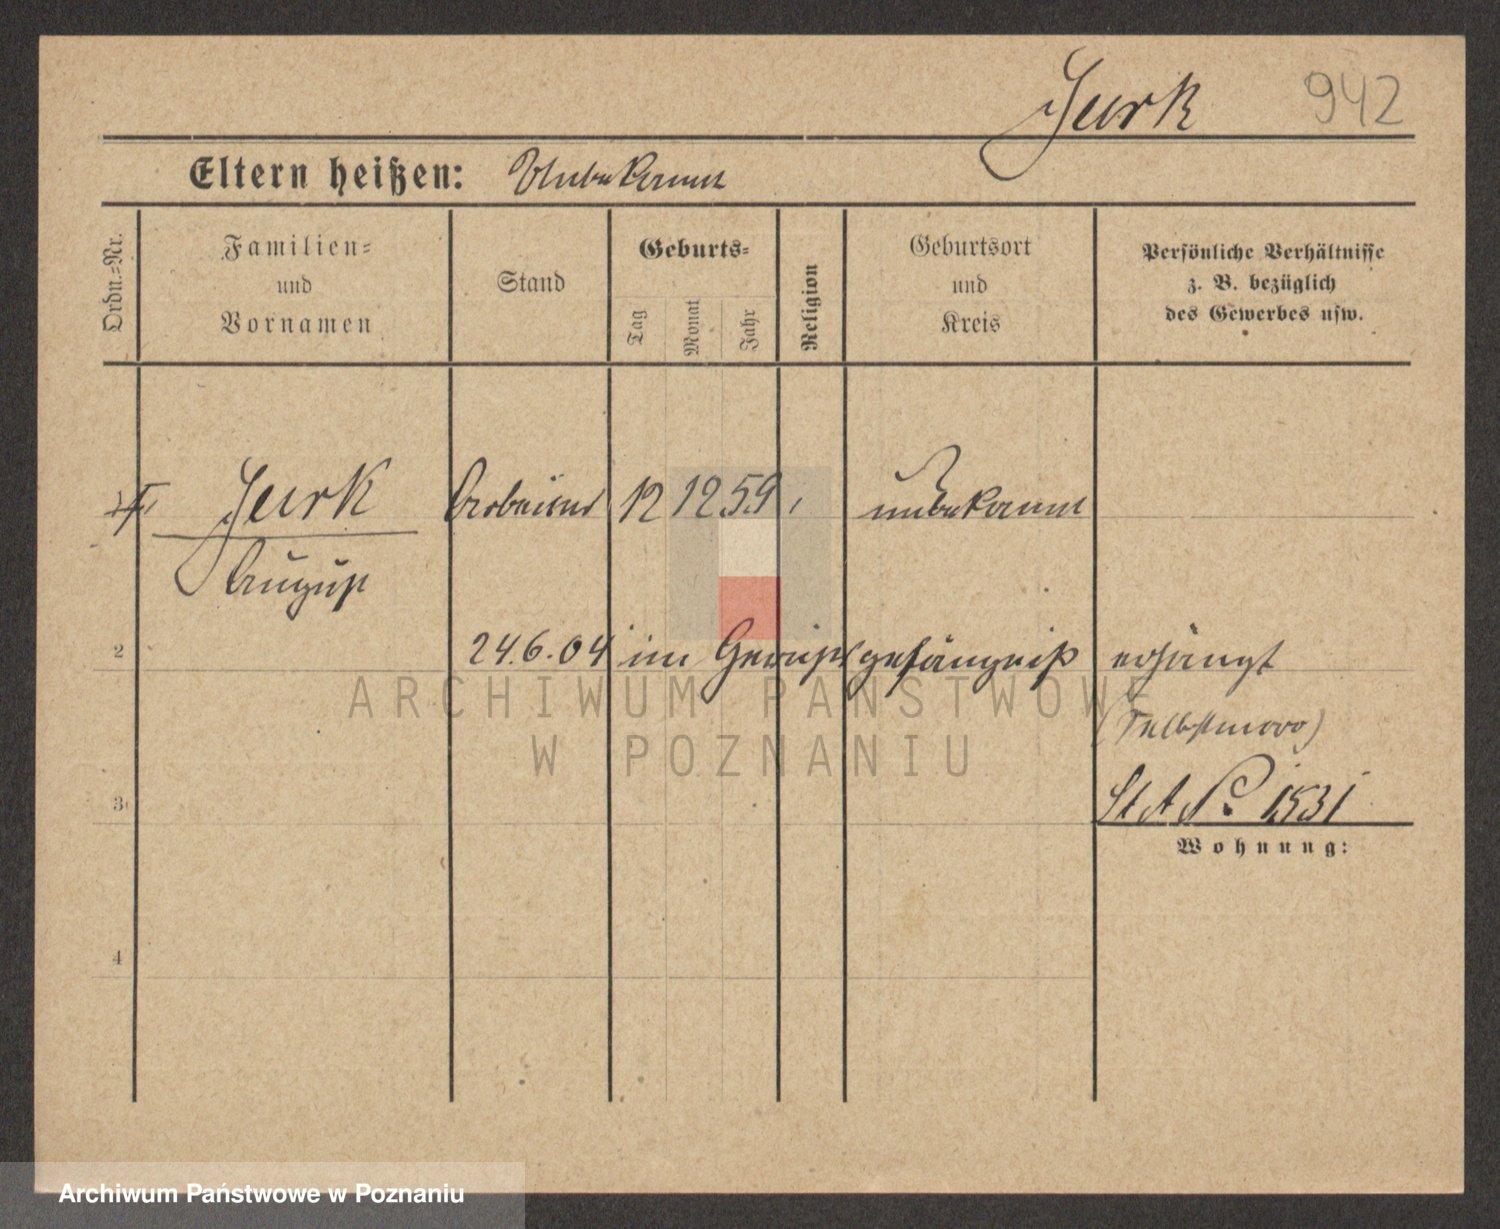 Jurk 942
Eltern heißen: Unbekannt
Ordn.=Nr.
Familien=
und
Vornamen
Stand
Geburts=
Tag
Monat
Jahr
Religion
Geburtsort
und
Kreis
Persönliche Verhältnisse
z. B. bezüglich
des Gewerbes usw.
Jurk Arbeiter 12 12 59 unbekannt
August
2 24.6.04 im Gerichtsgefängniß erhängt
(Selbstmord)
St A No 1531
3
Wohnung:
4
ARCHIWUM PAŃSTWOWE
W POZNANIU
Archiwum Państwowe w Poznaniu